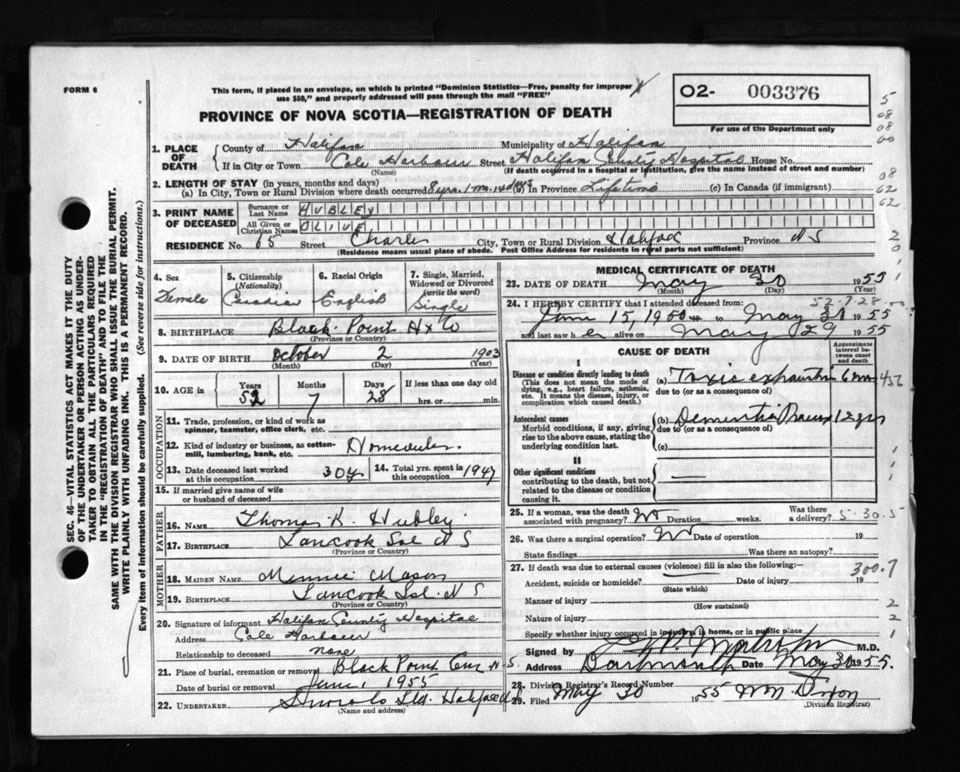 FORM 6
This form, if placed in an envelope, on which is printed "Dominion Statistics—Free, penalty for improper
use $50," and properly addressed will pass through the mail "FREE"
PROVINCE OF NOVA SCOTIA—REGISTRATION OF DEATH
O2- 003376
For use of the Department only
1. PLACE OF DEATH
County of Halifax Municipality of Halifax
If in City or Town Cole Harbour Street Halifax County Hospital House No.
(Name) (If death occurred in a hospital or institution, give the name instead of street and number)
2. LENGTH OF STAY (in years, months and days)
(a) In City, Town or Rural Division where death occurred 8 yrs. 1 mo. 14 (b) In Province Lifetime (c) In Canada (if immigrant)
3. PRINT NAME OF DECEASED
Surname or Last Name HUBLEY
All Given or Christian Names OLIVE
RESIDENCE No. 65 Street Charles City, Town or Rural Division Halifax Province N S
(Residence means usual place of abode. Post Office Address for residents in rural parts not sufficient)
4. Sex Female
5. Citizenship (Nationality) Canadian
6. Racial Origin English
7. Single, Married, Widowed or Divorced (write the word) Single
8. BIRTHPLACE Black Point Hx Co
(Province or Country)
9. DATE OF BIRTH October 2 1903
(Month) (Day) (Year)
10. AGE in Years 52 Months 7 Days 28 If less than one day old hrs. or min.
OCCUPATION
11. Trade, profession, or kind of work as
spinner, teamster, office clerk, etc.
12. Kind of industry or business, as cotton-
mill, lumbering, bank, etc.
13. Date deceased last worked
at this occupation 30 y. 14. Total yrs. spent in
this occupation 1947
15. If married give name of wife
or husband of deceased
FATHER
16. NAME Thomas Hubley
17. BIRTHPLACE Tancook Isl N S
(Province or Country)
MOTHER
18. MAIDEN NAME Minnie Mason
19. BIRTHPLACE Tancook Isl. N S
(Province or Country)
20. Signature of informant Halifax County Hospital
Address Cole Harbour
Relationship to deceased none
21. Place of burial, cremation or removal Black Point Cem N.S.
Date of burial or removal June 1 1955
22. UNDERTAKER Ltd. Halifax
(Name and address)
MEDICAL CERTIFICATE OF DEATH
23. DATE OF DEATH May 30 1955
(Month) (Day)
52-7-28
24. I HEREBY CERTIFY that I attended deceased from:
June 15, 1950 to May 30 1955
and last saw her alive on May 29 1955
CAUSE OF DEATH
Approximate interval between onset and death
I
Disease or condition directly leading to death
(This does not mean the mode of dying, e.g., heart failure, asthenia, etc. It means the disease, injury, or complication which caused death.)
(a) Toxic exhaustion 6 mo
due to (or as a consequence of)
Antecedent causes
Morbid conditions, if any, giving rise to the above cause, stating the underlying condition last.
(b) Dementia Praecox 12 yrs
due to (or as a consequence of)
(c)
II
Other significant conditions
contributing to the death, but not related to the disease or condition causing it.
25. If a woman, was the death
associated with pregnancy? No Duration weeks. Was there a delivery? 5-30.5
26. Was there a surgical operation? No Date of operation 19
State findings Was there an autopsy?
27. If death was due to external causes (violence) fill in also the following:— 300.7
Accident, suicide or homicide? Date of injury 19
(State which)
Manner of injury
(How sustained)
Nature of injury
Specify whether injury occurred in industry, in home, or in public place
Signed by M.D.
Address Dartmouth Date May 30 1955.
28. Division Registrar's Record Number
29. Filed May 30 1955 Wm Dixon
(Division Registrar)
SEC. 46—VITAL STATISTICS ACT MAKES IT THE DUTY
OF THE UNDERTAKER OR PERSON ACTING AS UNDER-
TAKER TO OBTAIN ALL THE PARTICULARS REQUIRED
IN THE "REGISTRATION OF DEATH" AND TO FILE THE
SAME WITH THE DIVISION REGISTRAR WHO SHALL ISSUE THE BURIAL PERMIT.
WRITE PLAINLY WITH UNFADING INK. THIS IS A PERMANENT RECORD.
Every item of information should be carefully supplied. (See reverse side for instructions.)